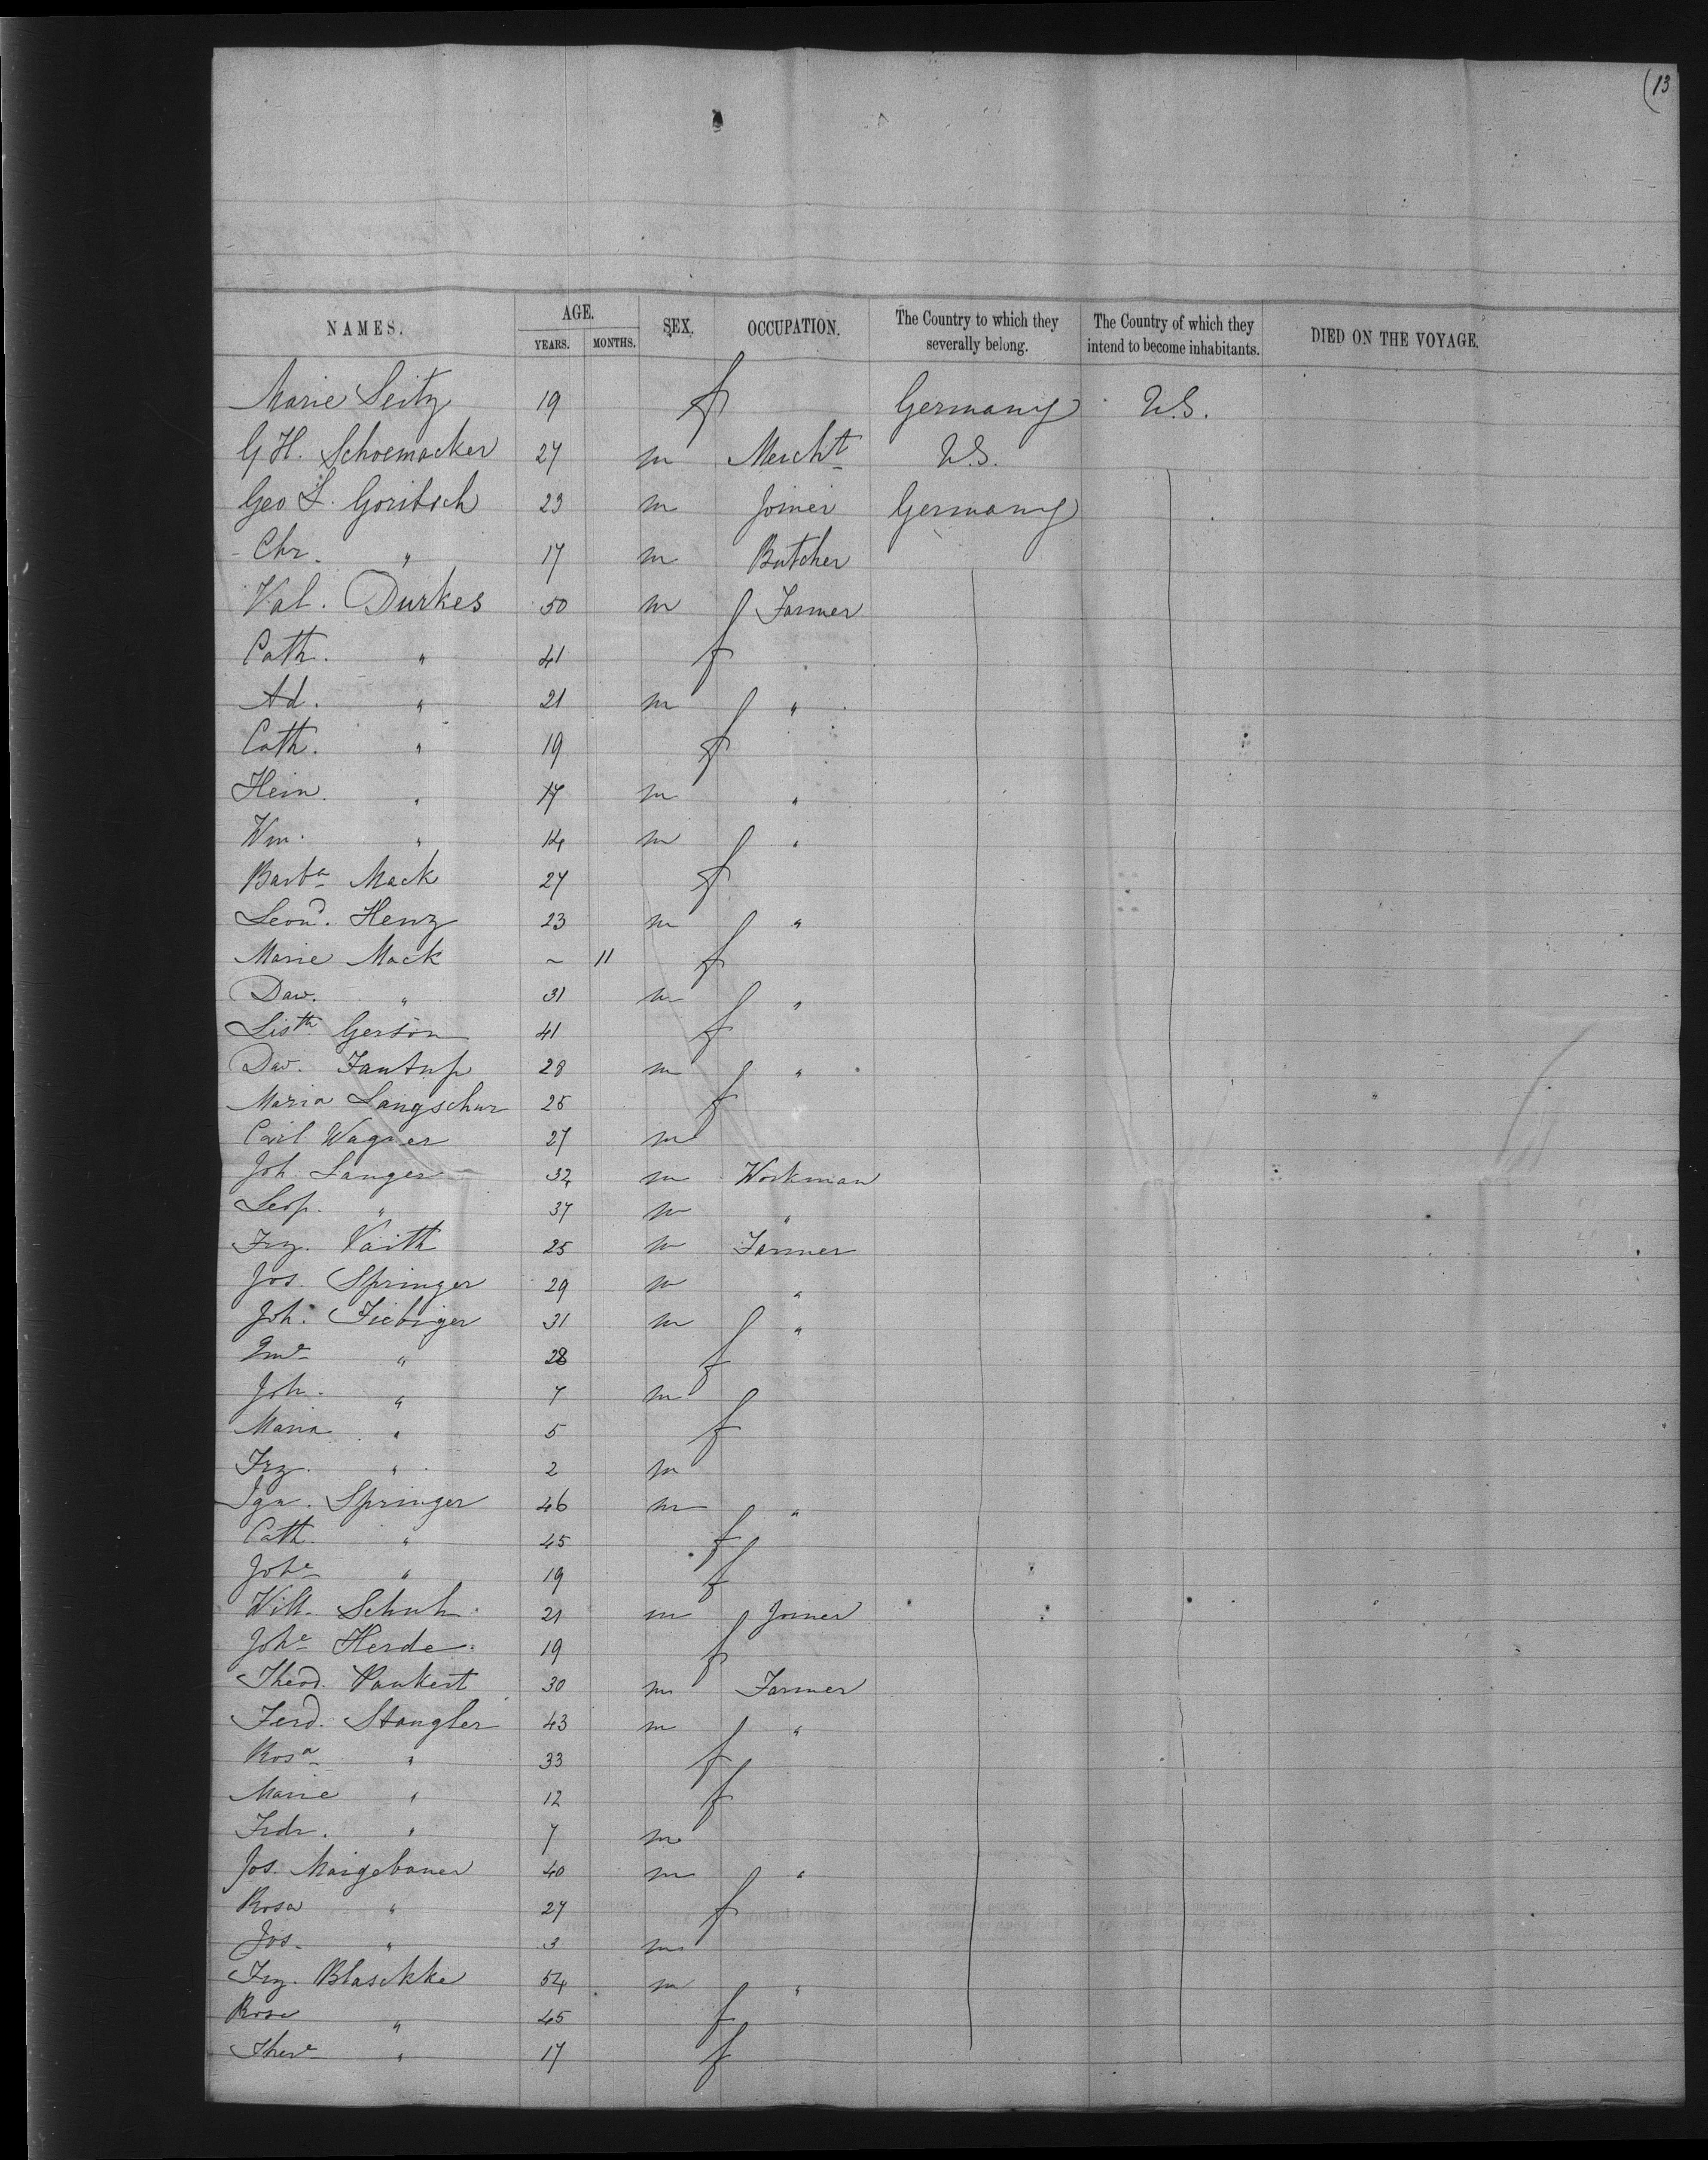 (13
NAMES. AGE. SEX. OCCUPATION. The Country to which they severally belong. The Country of which they intend to become inhabitants. DIED ON THE VOYAGE.
YEARS. MONTHS.
Marie Seitz 19 f Germany U.S.
G H. Schoemacker 27 m Mercht U.S.
Geo L. Goribsch 23 m Joiner Germany
Chr. " 17 m Butcher
Val. Durkes 50 m Farmer
Cath. " 41 f
Ad. " 21 m "
Cath. " 19 f
Hein. " 17 m "
Wm. " 14 m "
Barba Mack 27 f
Leond. Henz 23 m "
Marie Mack ~ 11 f
Dav. " 31 m "
Listh Gerson 41 f
Dav. 28 m "
Maria Langschur 25 f
Carl Wagner 27 m
Joh. Langer 32 m Workman
Leop. " 37 m "
Frz. Vaith 25 m Farmer
Jos. Springer 29 m "
Joh. Fiebiger 31 m "
" 28 f
Joh. " 7 m
Maria " 5 f
Frz. " 2 m
Ign. Springer 46 m "
Cath. " 45 f
Johe " 19 f
Wilh. Schuh. 21 m Joiner
Johe Herde. 19 f
Theod. Pankert 30 m Farmer
Ferd. Stangler 43 m "
Rosa " 33 f
Marie " 12 f
Frdr. " 7 m
Jos. Maigebauer 40 m "
Rosa " 27 f
Jos. " 3 m
Frz. Blaschke 54 m "
Rosa " 45 f
There " 17 f